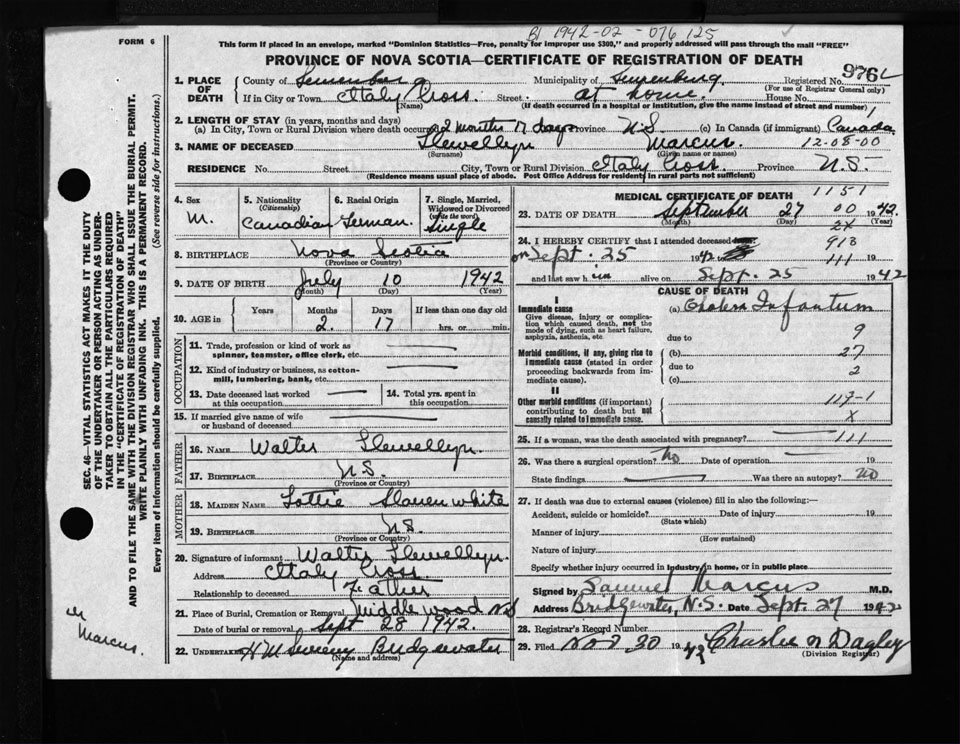 BI 1942-02-076125
FORM 6
This form if placed in an envelope, marked "Dominion Statistics—Free, penalty for improper use $300," and properly addressed will pass through the mail "FREE"
PROVINCE OF NOVA SCOTIA—CERTIFICATE OF REGISTRATION OF DEATH
1. PLACE OF DEATH County of Municipality of Lunenburg Registered No. 976
(For use of Registrar General only)
If in City or Town Italy Cross. Street at home. House No.
(Name) (If death occurred in a hospital or institution, give the name instead of street and number)
2. LENGTH OF STAY (in years, months and days)
(a) In City, Town or Rural Division where death occurred 2 months 17 days Province N.S. (c) In Canada (if immigrant) Canada
3. NAME OF DECEASED Llewellyn Marcus. 12-08-00
(Surname) (Given name or names)
RESIDENCE No. Street City, Town or Rural Division Italy Cross. Province N.S.
(Residence means usual place of abode. Post Office Address for residents in rural parts not sufficient)
4. Sex M.
5. Nationality (Citizenship) Canadian
6. Racial Origin German.
7. Single, Married, Widowed or Divorced (write the word) Single
8. BIRTHPLACE Nova Scotia
(Province or Country)
9. DATE OF BIRTH July 10 1942
(Month) (Day) (Year)
10. AGE in Years Months Days If less than one day old
2. 17 hrs. or min.
OCCUPATION
11. Trade, profession or kind of work as spinner, teamster, office clerk, etc.
12. Kind of industry or business, as cotton-mill, lumbering, bank, etc.
13. Date deceased last worked at this occupation
14. Total yrs. spent in this occupation
15. If married give name of wife or husband of deceased
FATHER
16. NAME Walter Llewellyn.
17. BIRTHPLACE N.S.
(Province or Country)
MOTHER
18. MAIDEN NAME Lottie Slauenwhite
19. BIRTHPLACE N.S.
(Province or Country)
20. Signature of informant Walter Llewellyn.
Address Italy Cross.
Relationship to deceased Father
21. Place of Burial, Cremation or Removal Middlewood NS
Date of burial or removal Sept 28 1942.
22. UNDERTAKER H M Sweeny Bridgewater
(Name and address)
MEDICAL CERTIFICATE OF DEATH 1151
23. DATE OF DEATH September 27 00 1942.
(Month) (Day) (Year)
2X
24. I HEREBY CERTIFY that I attended deceased 913
on Sept. 25 1942 111
and last saw him alive on Sept. 25 1942
CAUSE OF DEATH
I
Immediate cause
Give disease, injury or complication which caused death, not the mode of dying, such as heart failure, asphyxia, asthenia, etc
(a) Cholera Infantum
due to 9
Morbid conditions, if any, giving rise to immediate cause (stated in order proceeding backwards from immediate cause).
(b) 27
due to 2
(c)
II
Other morbid conditions (if important) contributing to death but not causally related to immediate cause.
119-1
X
25. If a woman, was the death associated with pregnancy? 111
26. Was there a surgical operation? No Date of operation 19
State findings Was there an autopsy? no
27. If death was due to external causes (violence) fill in also the following:—
Accident, suicide or homicide? Date of injury 19
(State which)
Manner of injury
(How sustained)
Nature of injury
Specify whether injury occurred in industry, in home, or in public place
Signed by Samuel Marcus M.D.
Address Bridgewater, N.S. Date Sept. 27 1942
28. Registrar's Record Number
29. Filed Nov 30 1942 Charlie N Dagley
(Division Registrar)
SEC. 46—VITAL STATISTICS ACT MAKES IT THE DUTY
OF THE UNDERTAKER OR PERSON ACTING AS UNDER-
TAKER TO OBTAIN ALL THE PARTICULARS REQUIRED
IN THE "CERTIFICATE OF REGISTRATION OF DEATH"
AND TO FILE THE SAME WITH THE DIVISION REGISTRAR WHO SHALL ISSUE THE BURIAL PERMIT.
WRITE PLAINLY WITH UNFADING INK. THIS IS A PERMANENT RECORD.
Every item of information should be carefully supplied. (See reverse side for instructions.)
Marcus.